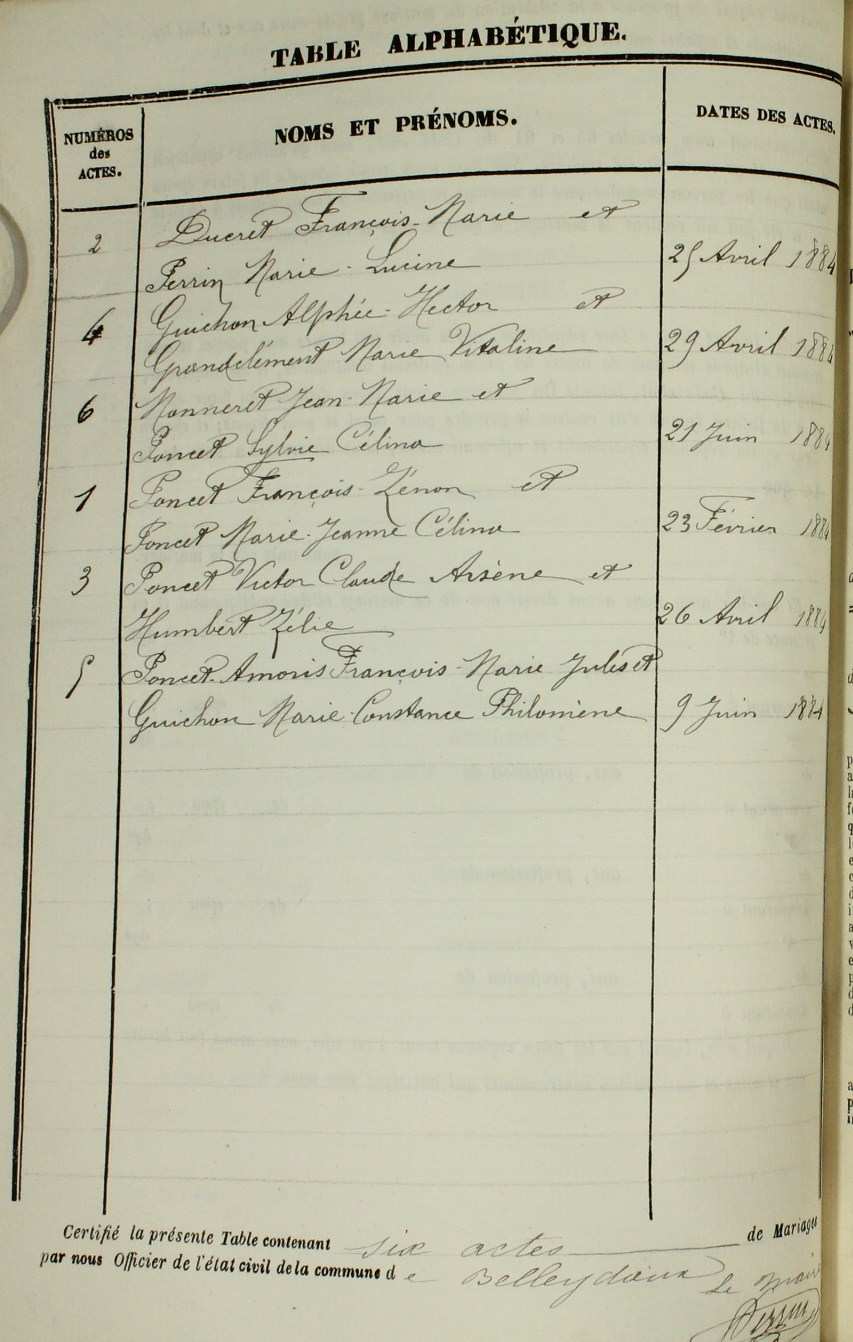 TABLE ALPHABÉTIQUE.
NUMÉROS des ACTES. NOMS ET PRÉNOMS. DATES DES ACTES.
2 Ducret François-Marie et
Perrin Marie-Lucine 25 Avril 1884
4 Guichon Alphée-Hector et
Grandclément Marie Vitaline 29 Avril 1884
6 Monneret Jean-Marie et
Poncet Sylvie Célina 21 Juin 1884
1 Poncet François-Zénon et
Poncet Marie-Jeanne Célina 23 Février 1884
3 Poncet Victor Claude Arsène et
Humbert Zélie 26 Avril 1884
5 Poncet-Amoris François-Marie Jules et
Guichon Marie-Constance Philomène 9 Juin 1884
Certifié la présente Table contenant six actes de Mariages
par nous Officier de l'état civil de la commune de Belleydoux Le Maire
Perrin